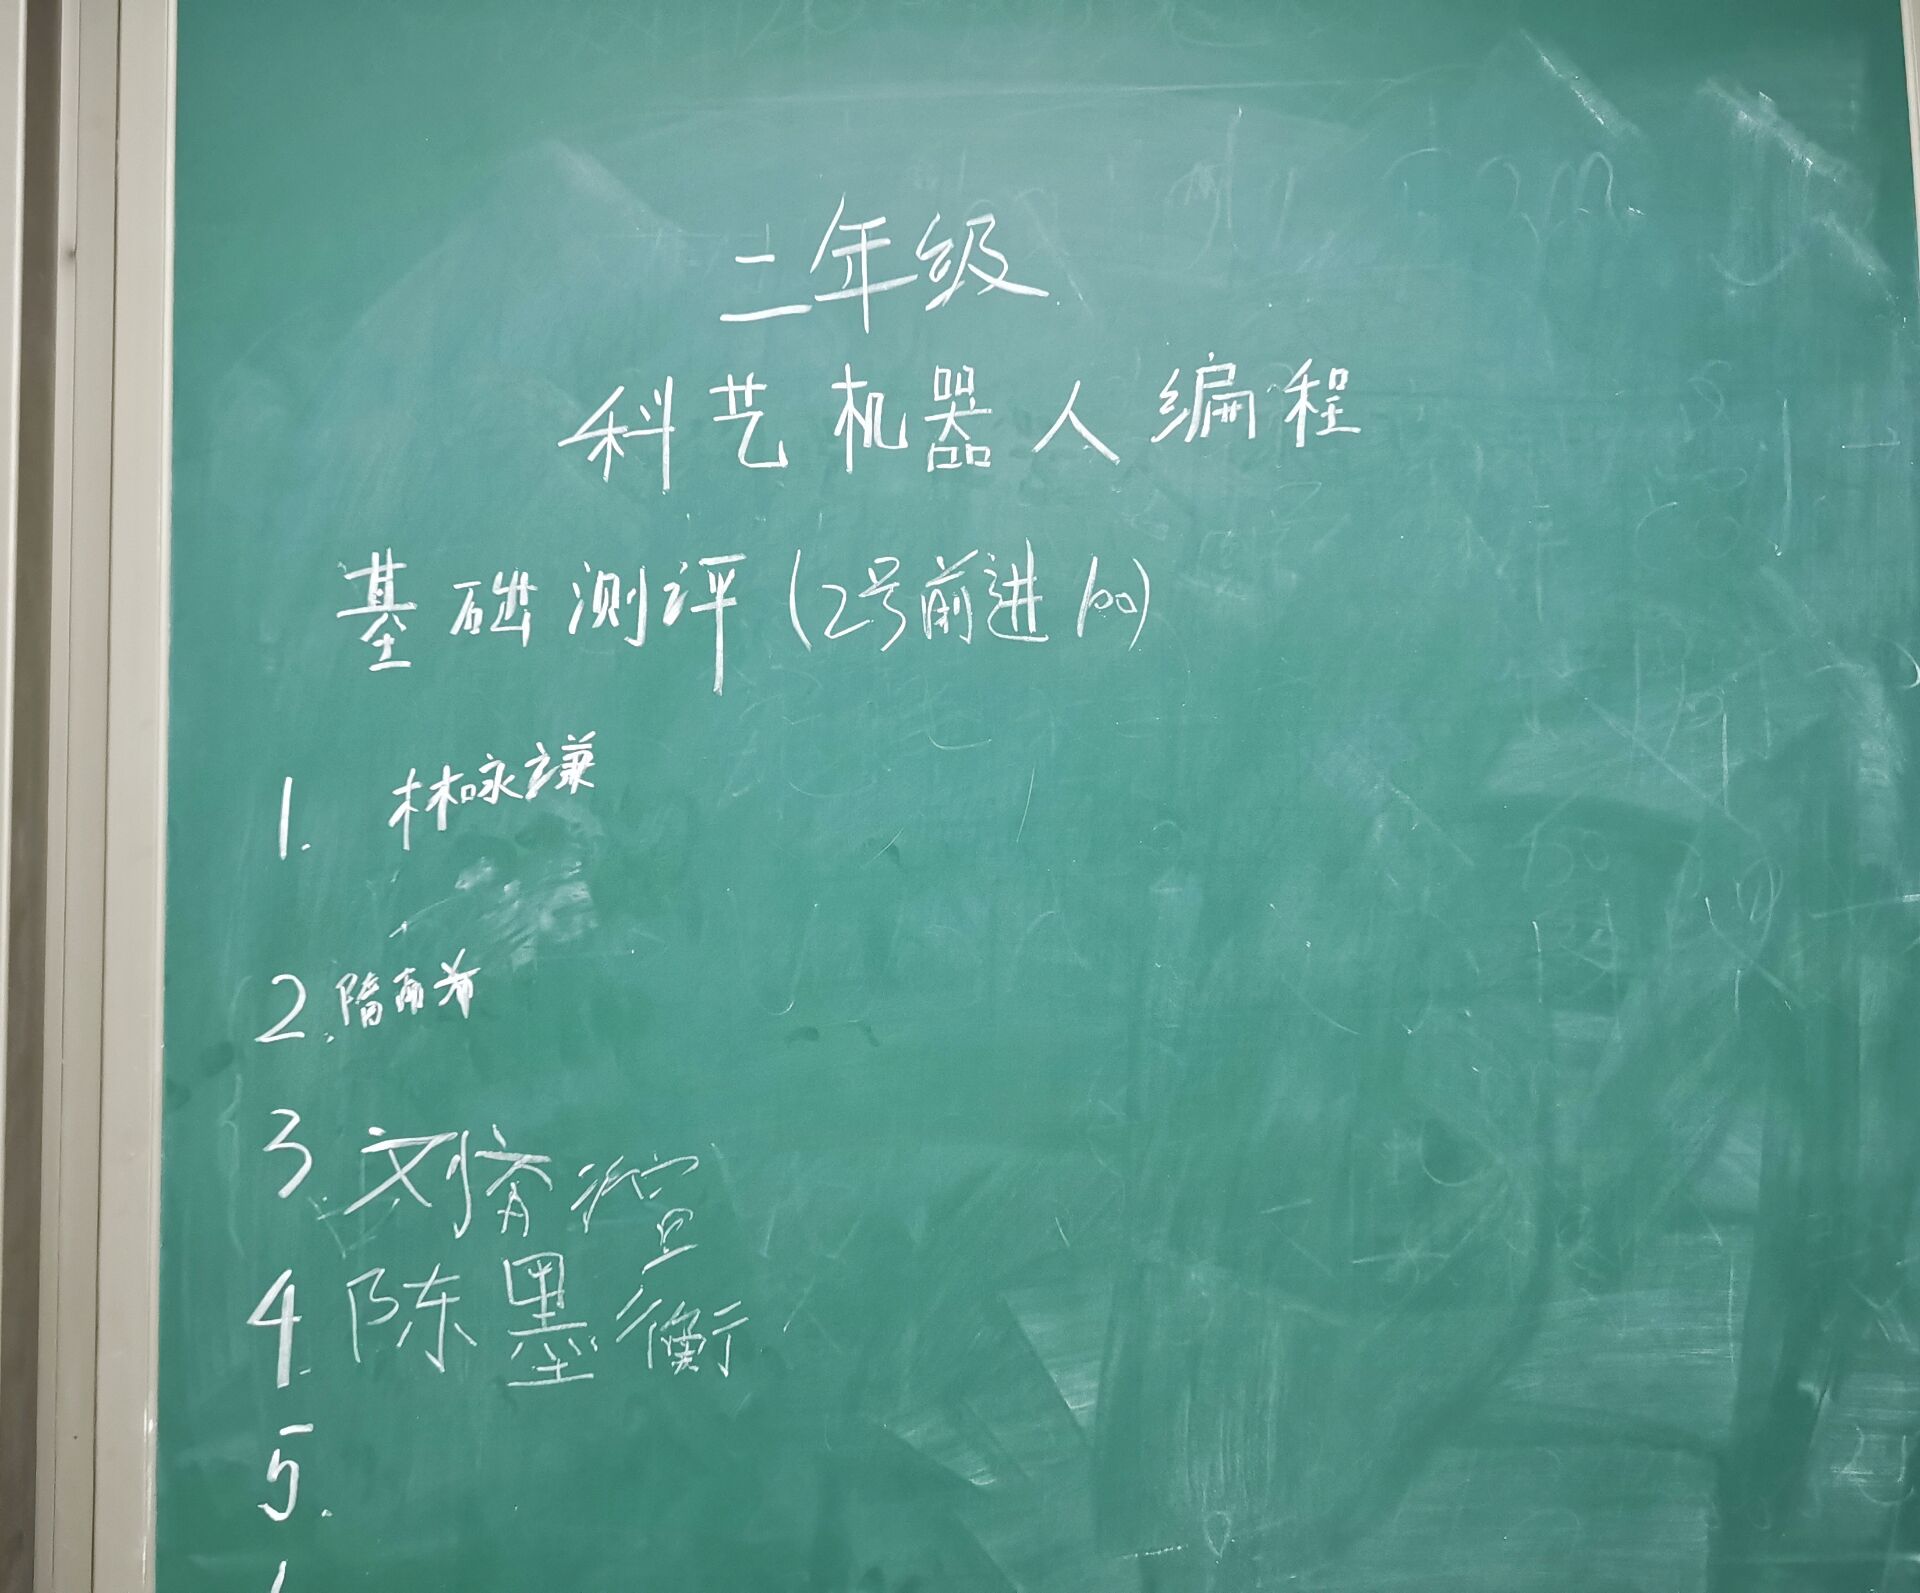 二年级
科艺机器人编程
基础测评(2号前进100)
1. 林咏谦
2. 隋
3 刘
4. 陈墨衡
5.